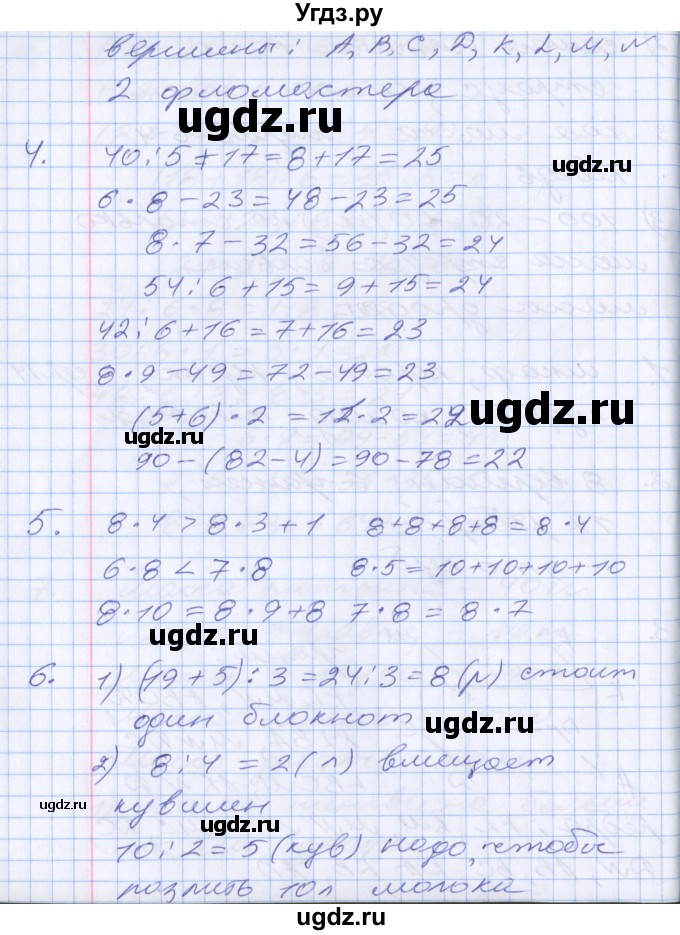 Угдз.ру
вершины: A, B, C, D, K, L, M, N
2 фломастера
ugdz.ru
4. 40:5+17=8+17=25
ugdz.ru
6·8-23=48-23=25
8·7-32=56-32=24
54:6+15=9+15=24
42:6+16=7+16=23
8·9-49=72-49=23
(5+6)·2 =11·2=22
ugdz.ru
ugdz.ru
90-(82-4)=90-78=22
5. 8·4>8·3+1 8+8+8+8=8·4
6·8<7·8 8·5=10+10+10+10
8·10=8·9+8 7·8=8·7
ugdz.ru
6. 1) (19+5):3=24:3=8(р) стоит
один блокнот
ugdz.ru
2) 8:4=2(л) вмещает
кувшин
ugdz.ru
ugdz.ru
10:2=5(кув) надо, чтобы
разлить 10л молока
ugdz.ru
ugdz.ru